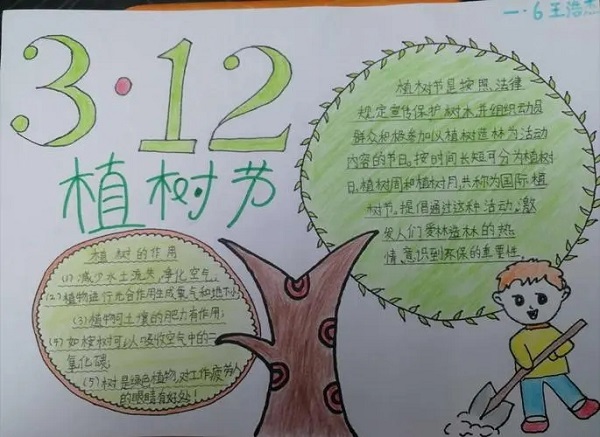 一·6王浩杰
3·12
植树节
植树节是按照法律
规定宣传保护树木,并组织动员
群众积极参加以植树造林为活动
内容的节日。按时间长短可分为植树
日、植树周和植树月,共称为国际植
树节。提倡通过这种活动,激
发人们爱林造林的热
情、意识到环保的重要性
植树的作用
(1)减少水土流失,净化空气。
(2)植物进行光合作用生成氧气和地下水
(3)植物对土壤的肥力有作用;
(4)如桉树可以吸收空气中的二
氧化碳
(5)树是绿色植物,对工作疲劳人
的眼睛有好处!